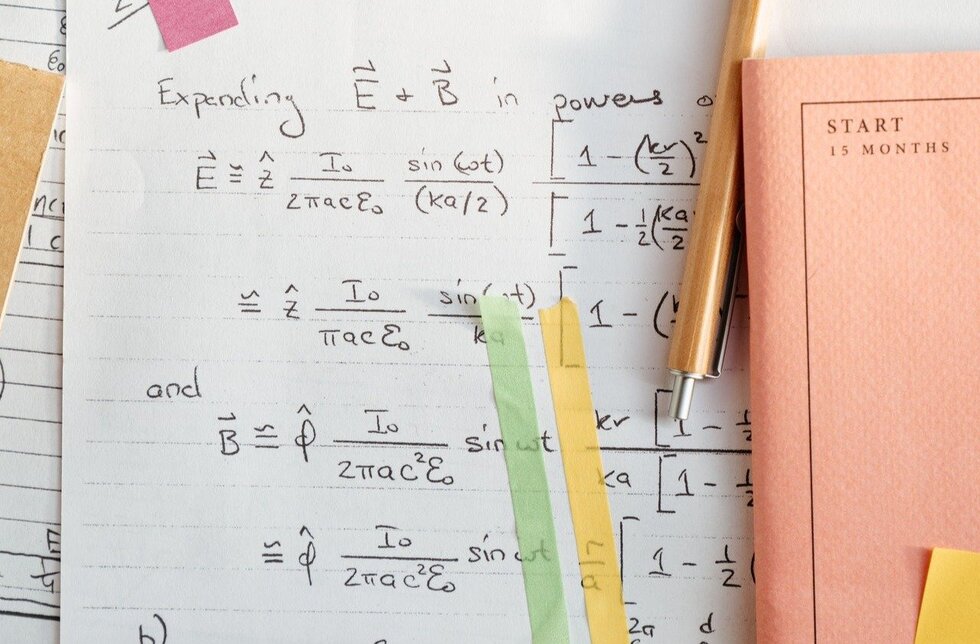 Expanding E⃗ + B⃗ in powers
E⃗ ≅ ẑ I₀/(2πacε₀) sin(ωt)/(ka/2) [1 - (kr/2)²/[1 - ½(ka/2
≅ ẑ I₀/(πacε₀) sin(ωt)/ka [1 - (
and
B⃗ ≅ φ̂ I₀/(2πac²ε₀) sin ωt kr[1 - ½/ka[1 - ½
≅ φ̂ I₀/(2πac²ε₀) sin ωt r/a [1 - ½(
b)
2π d
START
15 MONTHS